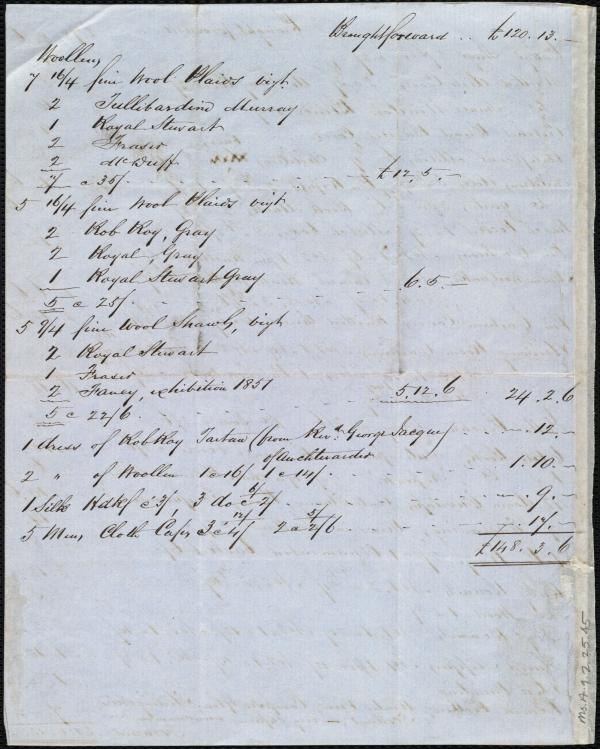 Brought forward .. £120.13.–
Woollens
7 16/4 fine Wool Plaids vizt.
2 Tullibardine Murray
1 Royal Stewart
2 Fraser
2 McDuff
7 @ 35/. £12,5.–
5 16/4 fine Wool Plaids vizt
2 Rob Roy, Gray
2 Royal, Gray
1 Royal Stewart Gray
5 @ 25/. 6.5.–
5 9/4 fine Wool Shawls, vizt
2 Royal Stewart
1 Fraser
2 Fancy, exhibition 1851
5 @ 22/6. 5,12.6 24.2.6
1 dress of Rob Roy Tartan (from Revd. George Jacque) .12.–
of Auchterarder
2 " of Woollen 1 @ 16/ 1 @ 14/. 1.10.–
1 Silk Hdkf @ 3/, 3 do @ 2/ 6/ .9.–
5 Mens Cloth Caps 3 @ 4/ 12/ 2 @ 2/6 5/ .17.–
£148.3.6
Ms.A.9.2.25.65